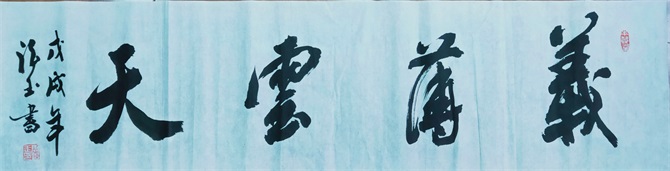 義薄雲天
戊戌年
書